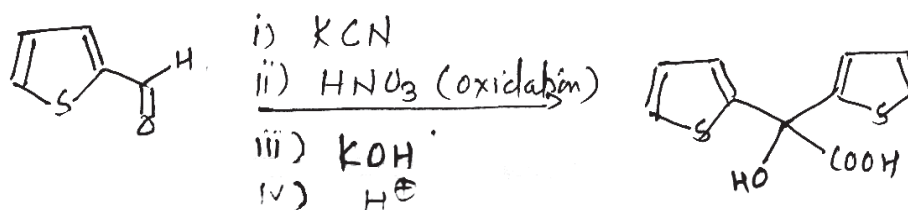 i) KCN
ii) HNO₃ (oxidation)
iii) KOH
iv) H⊕
S
H
O
S
S
HO
COOH